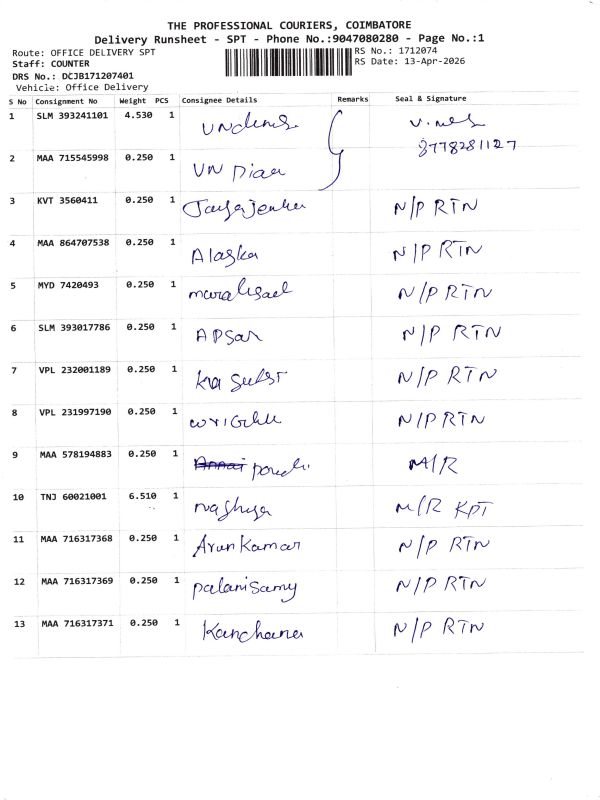 THE PROFESSIONAL COURIERS, COIMBATORE
Delivery Runsheet - SPT - Phone No.:9047080280 - Page No.:1
Route: OFFICE DELIVERY SPT
Staff: COUNTER
DRS No.: DCJB171207401
Vehicle: Office Delivery
RS No.: 1712074
RS Date: 13-Apr-2026
S No Consignment No Weight PCS Consignee Details Remarks Seal & Signature
1 SLM 393241101 4.530 1
8778281127
2 MAA 715545998 0.250 1 VN
3 KVT 3560411 0.250 1 N/P RTN
4 MAA 864707538 0.250 1 Alaska N/P RTN
5 MYD 7420493 0.250 1 N/P RTN
6 SLM 393017786 0.250 1 APSar N/P RTN
7 VPL 232001189 0.250 1 N/P RTN
8 VPL 231997190 0.250 1 N/P RTN
9 MAA 578194883 0.250 1 M/R
10 TNJ 60021001 6.510 1 M/R KPT
11 MAA 716317368 0.250 1 Arun Kamar N/P RTN
12 MAA 716317369 0.250 1 palanisamy N/P RTN
13 MAA 716317371 0.250 1 Kanchana N/P RTN